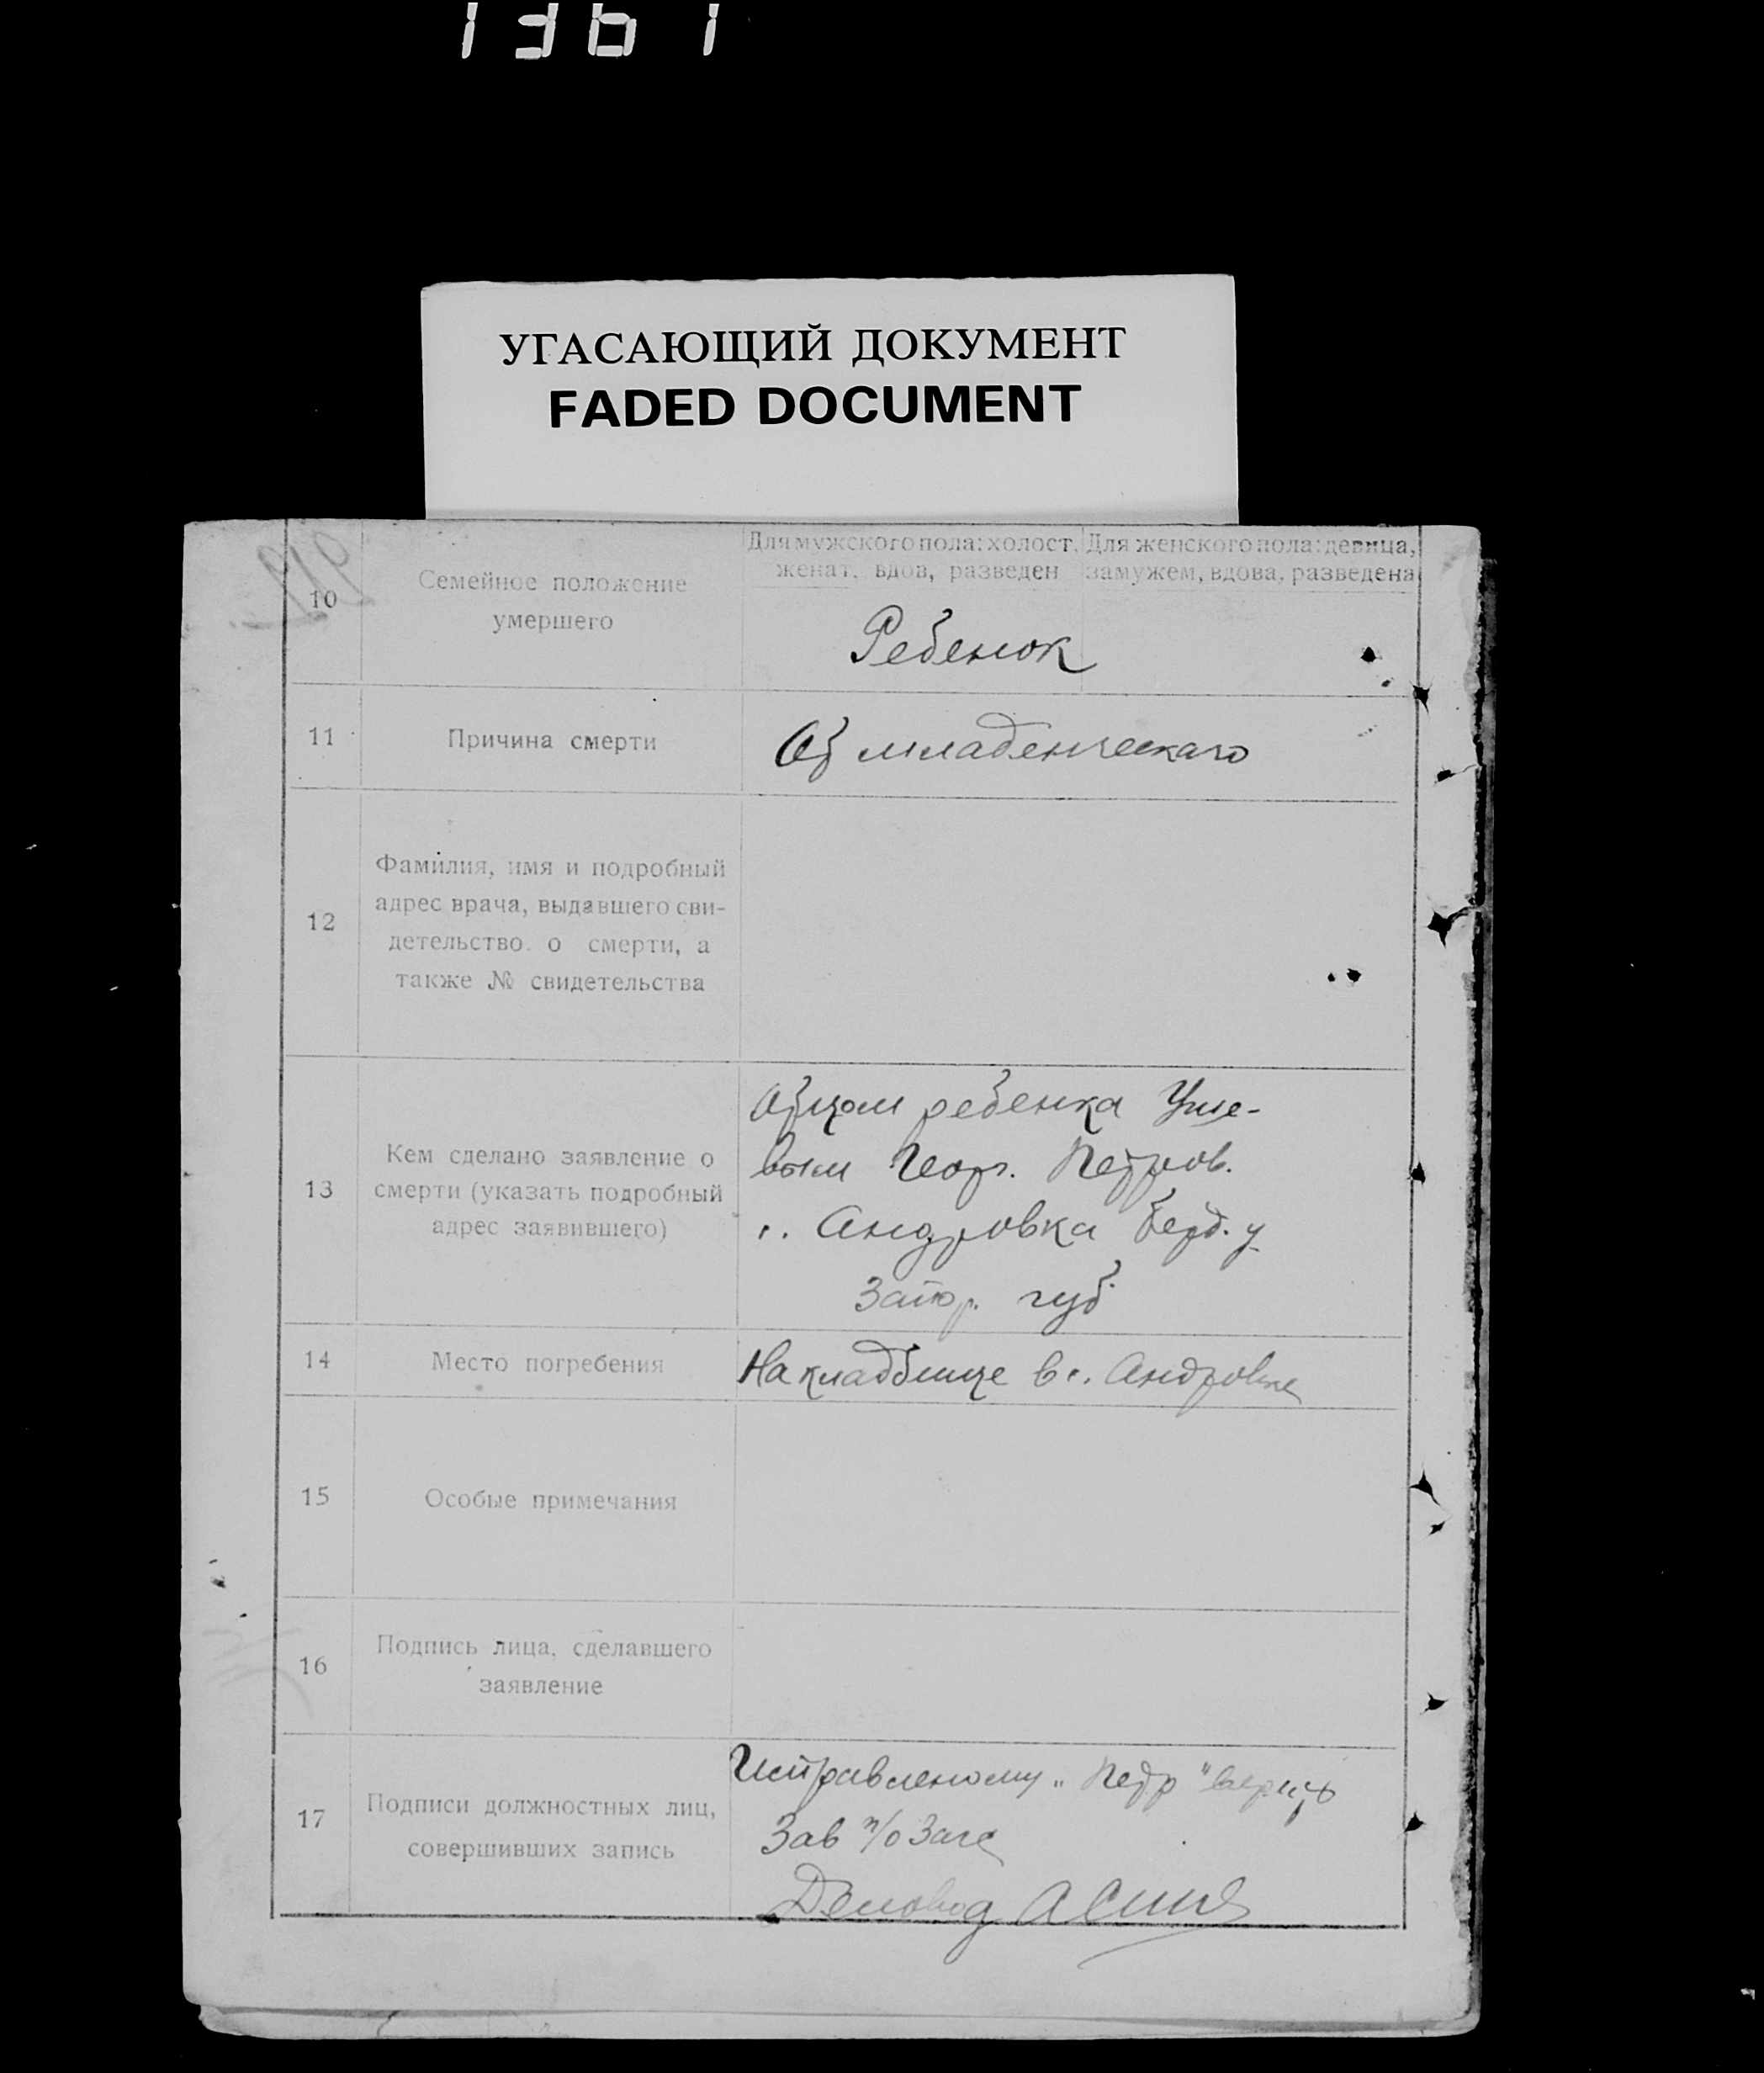 1361
УГАСАЮЩИЙ ДОКУМЕНТ
FADED DOCUMENT
10
Семейное положение
умершего
Для мужского пола: холост,
женат, вдов, разведен
Для женского пола: девица,
замужем, вдова, разведена
Ребенок
11
Причина смерти
От младенческаго
12
Фамилия, имя и подробный
адрес врача, выдавшего сви-
детельство о смерти, а
также № свидетельства
13
Кем сделано заявление о
смерти (указать подробный
адрес заявившего)
Отцом ребенка
Геор. Петров.
с. Андровка Берд. у
Запор. губ
14
Место погребения
На кладбище в с. Андровке
15
Особые примечания
16
Подпись лица, сделавшего
заявление
17
Подписи должностных лиц,
совершивших запись
Исправленому „Петр" верить
Зав п/о Загс
Деловод А